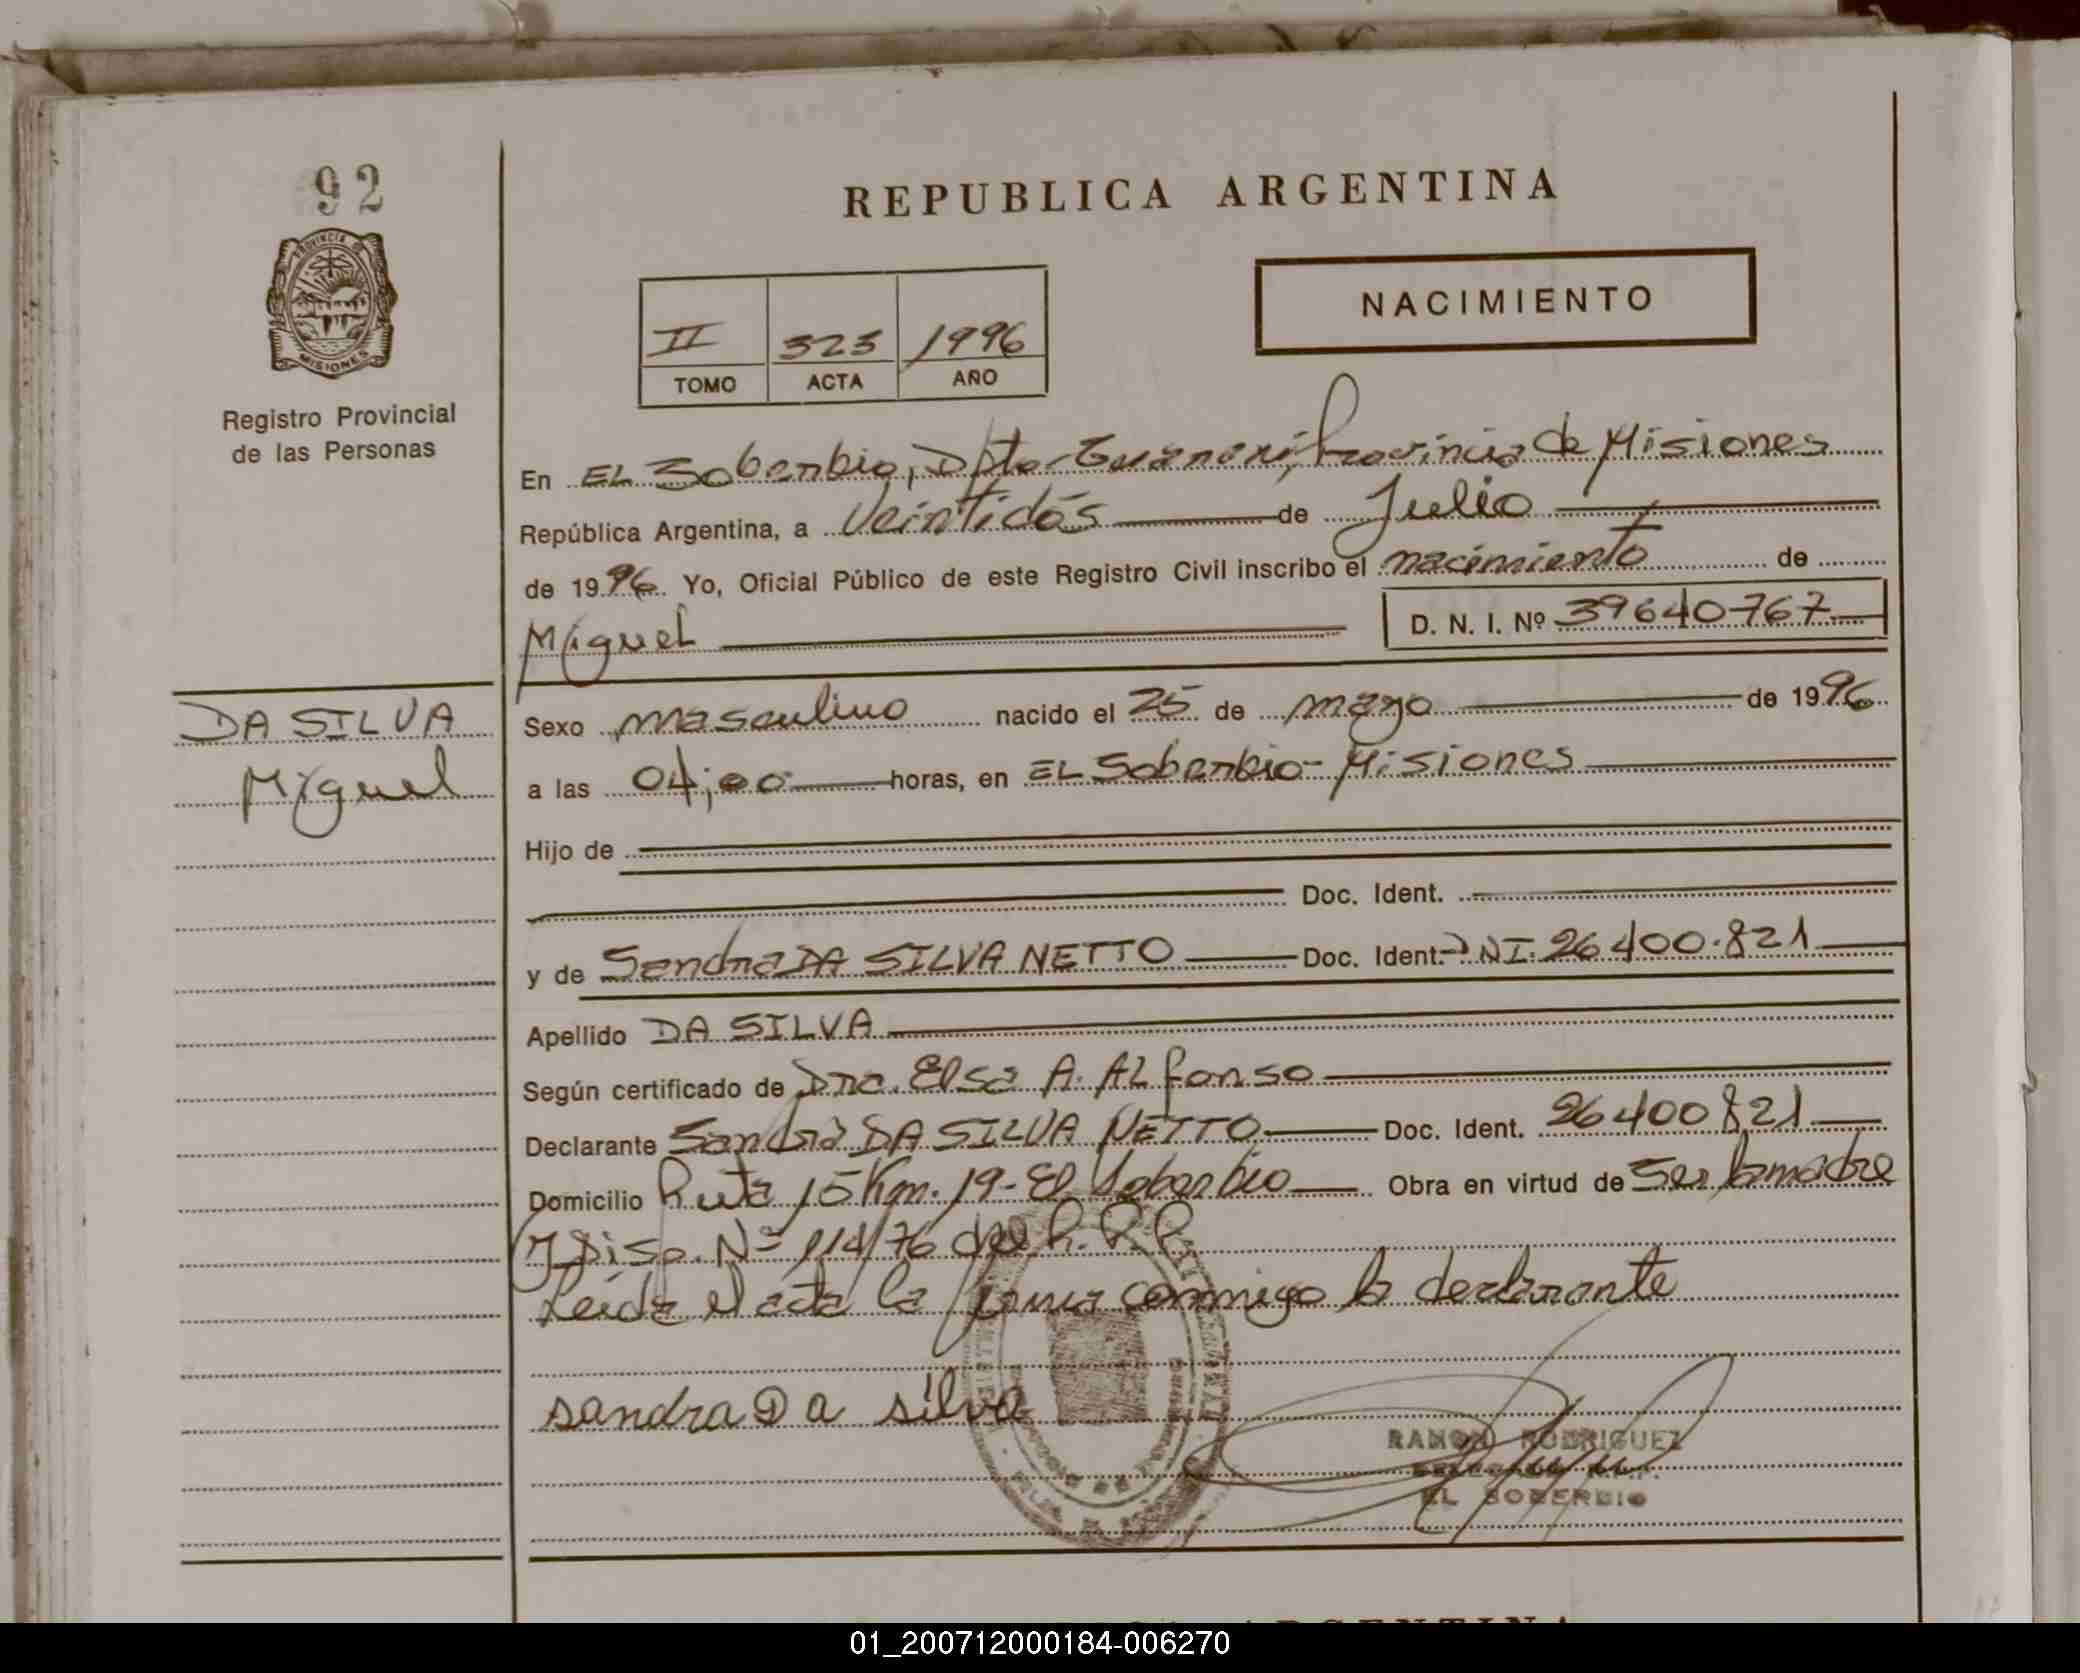 92
PROVINCIA DE
MISIONES
Registro Provincial
de las Personas
REPUBLICA ARGENTINA
NACIMIENTO
II 323 1996
TOMO ACTA AÑO
En EL Soberbio, Dpto-Guarani, Provincia de Misiones
República Argentina, a Veintidós de Julio
de 1996 Yo, Oficial Público de este Registro Civil inscribo el nacimiento de
Miguel D. N. I. Nº 39640767
DA SILVA
Miguel
Sexo masculino nacido el 25 de mayo de 1996
a las 04;00 horas, en EL Soberbio- Misiones
Hijo de
Doc. Ident.
y de Sandra DA SILVA NETTO Doc. Ident. DNI. 26400.821
Apellido DA SILVA
Según certificado de Dra. Elsa A. ALfonso
Declarante Sandra DA SILVA NETTO Doc. Ident. 26400821
Domicilio Ruta 15 Km. 19- El Soberbio Obra en virtud de Ser la madre
y Disp. Nº 114/76 del R. P. P.
Leída el acta la firma conmigo la declarante
sandra Da silva
RAMON RODRIGUEZ
EL SOBERBIO
REPUBLICA ARGENTINA
01_200712000184-006270